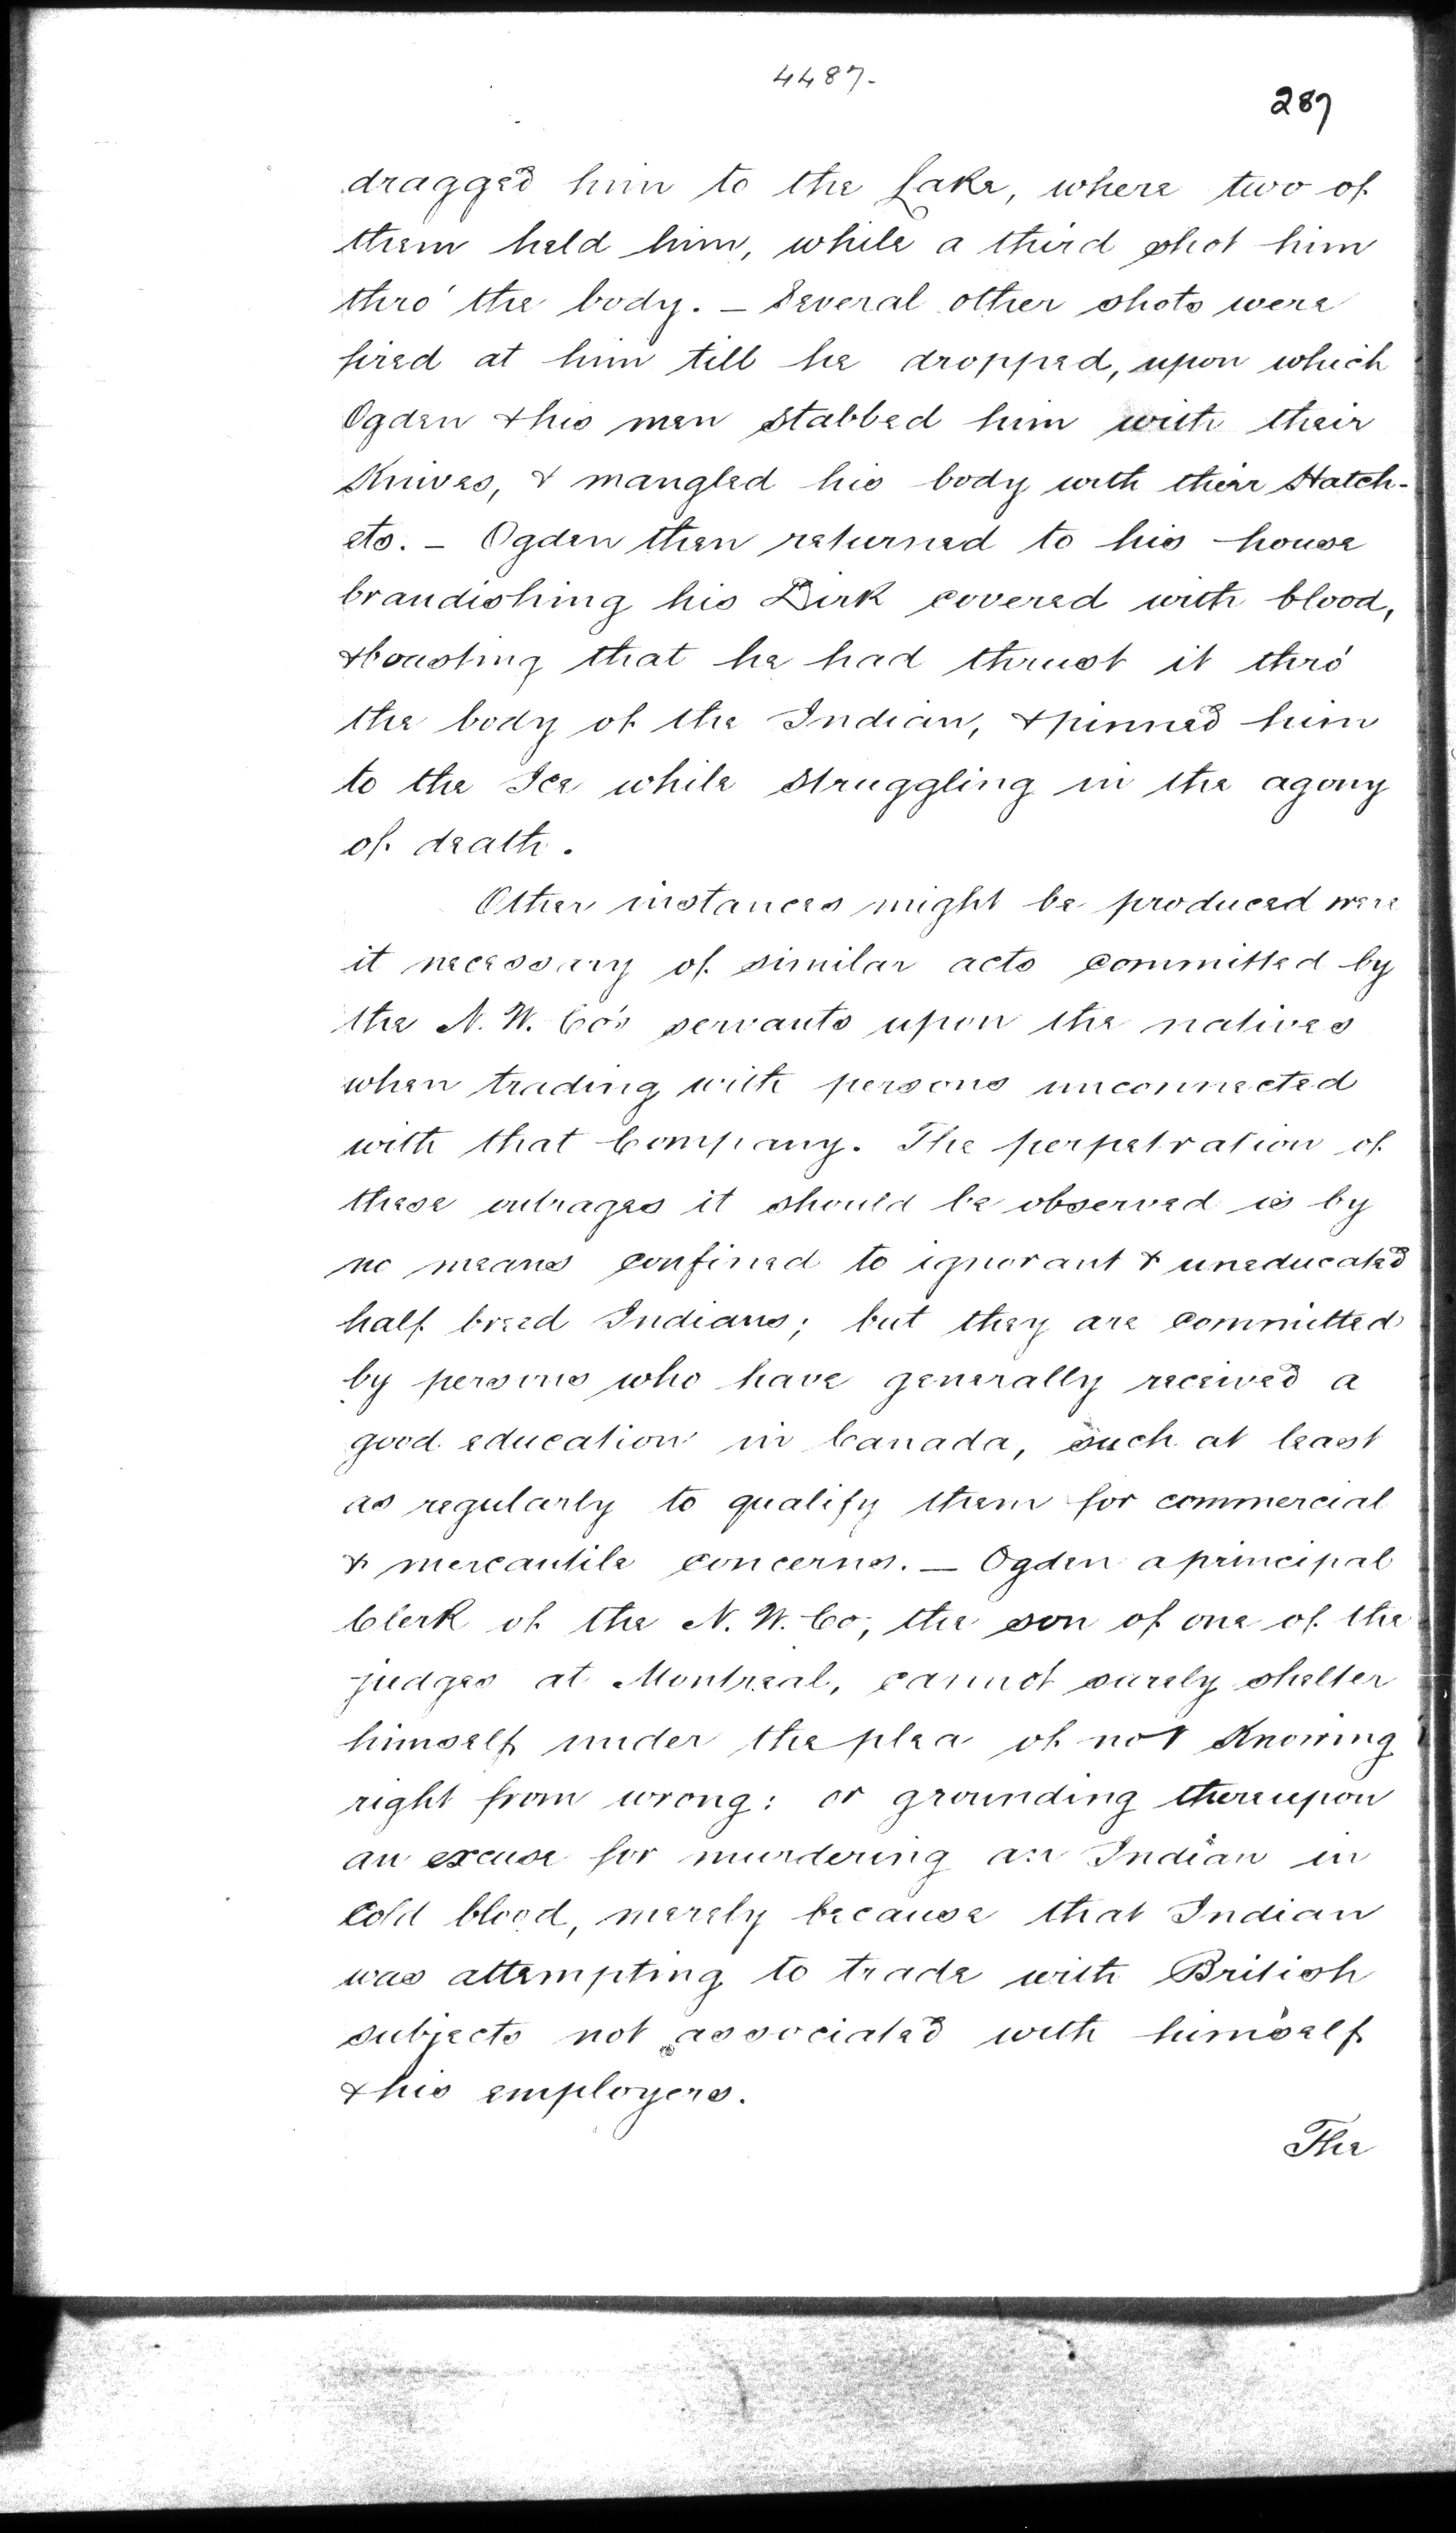 4487-
287
dragged him to the Lake, where two of
them held him, while a third shot him
thro' the body. – Several other shots were
fired at him till he dropped, upon which
Ogden & his men stabbed him with their
Knives, & mangled his body with their Hatch-
ets. – Ogden then returned to his house
brandishing his Dirk covered with blood,
& boasting that he had thrust it thro'
the body of the Indian, & pinned him
to the Ice while struggling in the agony
of death.
Other instances might be produced were
it necessary of similar acts committed by
the N. W. Co's servants upon the natives
when trading with persons unconnected
with that Company. The perpetration of
these outrages it should be observed is by
no means confined to ignorant & uneducated
half breed Indians; but they are committed
by persons who have generally received a
good education in Canada, such at least
as regularly to qualify them for commercial
& mercantile concerns. — Ogden a principal
Clerk of the N. W. Co, the son of one of the
judges at Montreal, cannot surely shelter
himself under the plea of not Knowing
right from wrong: or grounding thereupon
an excuse for murdering an Indian in
Cold blood, merely because that Indian
was attempting to trade with British
subjects not associated with himself
& his employers.
The